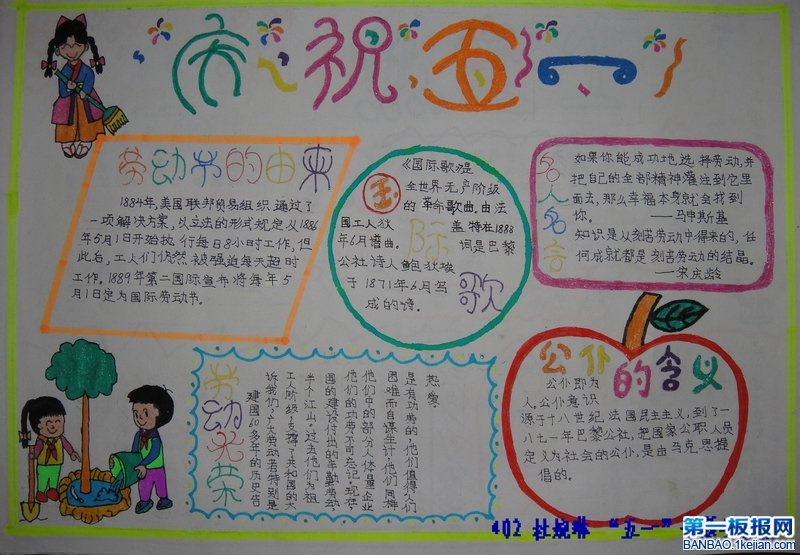 庆祝五一
劳动节的由来
1884年,美国联邦贸易组织通过了
一项解决方案,以立法的形式规定从1886
年5月1日开始执行每日8小时工作,但
此后,工人们仍然被强迫每天超时
工作。1889年第二国际宣布将每年5
月1日定为国际劳动节。
国际歌
《国际歌》是
全世界无产阶级
的革命歌曲,由法
国工人狄盖特在1888
年6月谱曲。词是巴黎
公社诗人鲍狄埃
于1871年6月写
成的诗。
名人名言
如果你能成功地选择劳动,并
把自己的全部精神灌注到它里
面去,那么幸福本身就会找到
你。 ——马申斯基
知识是从刻苦劳动中得来的,任
何成就都是刻苦劳动的结晶。
——宋庆龄
劳动光荣
建国60多年的历史告
诉我们:广大劳动者特别是
工人阶级,支撑了共和国的大
半个江山。过去他们为祖
国的建设付出的辛勤劳动,
他们的功劳不可忘记。现在,
他们中的部分人体量企业
困难而自谋生计,他们同样
是有功劳的,他们值得人们
热爱。
公仆的含义
公仆即为
人,公仆意识
源于十八世纪,法国民主主义,到了一
八七一年巴黎公社,把国家公职人员
定义为社会的公仆,是由马克思提
倡的。
402 杜婉琳 “五一”
第一板报网
BANBAO.1kejian.com